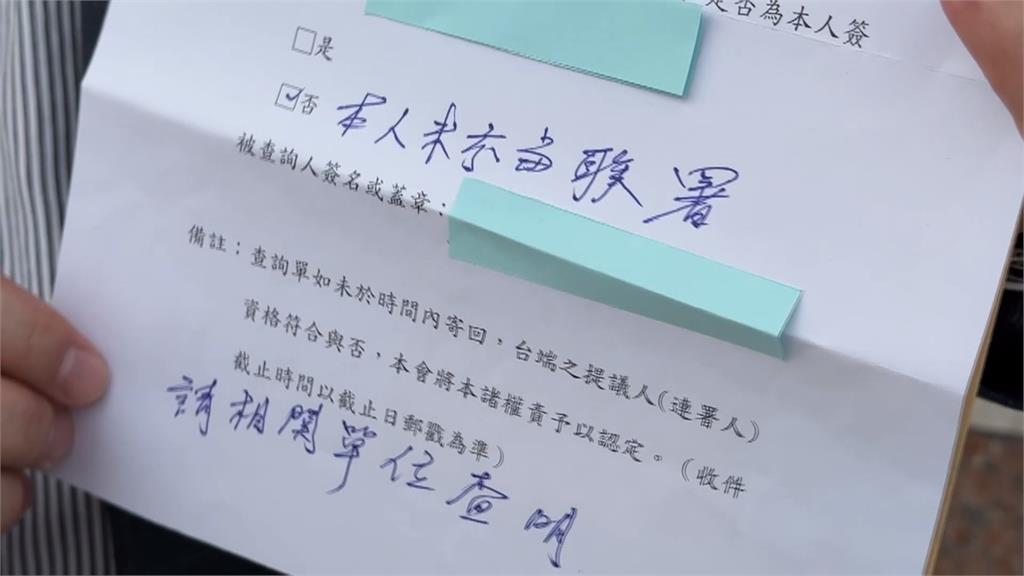 是否為本人簽
□是
☑否 本人未参与联署
被查詢人簽名或蓋章：
備註：查詢單如未於時間內寄回，台端之提議人(連署人)
資格符合與否，本會將本諸權責予以認定。(收件
截止時間以截止日郵戳為準)
請相関單位查明